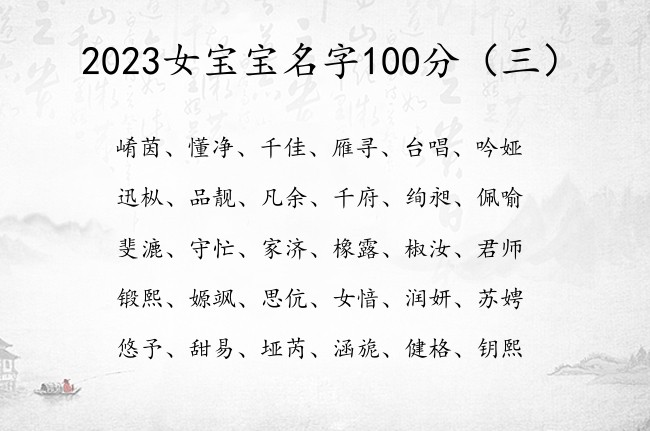 2023女宝宝名字100分（三）
崤茵、懂净、千佳、雁寻、台唱、吟娅
迅枞、品靓、凡余、千府、绚昶、佩喻
斐漉、守忙、家济、橡露、椒汝、君师
锻熙、嫄飒、思伉、女愔、润妍、苏娉
悠予、甜易、垭芮、涵旎、健格、钥熙